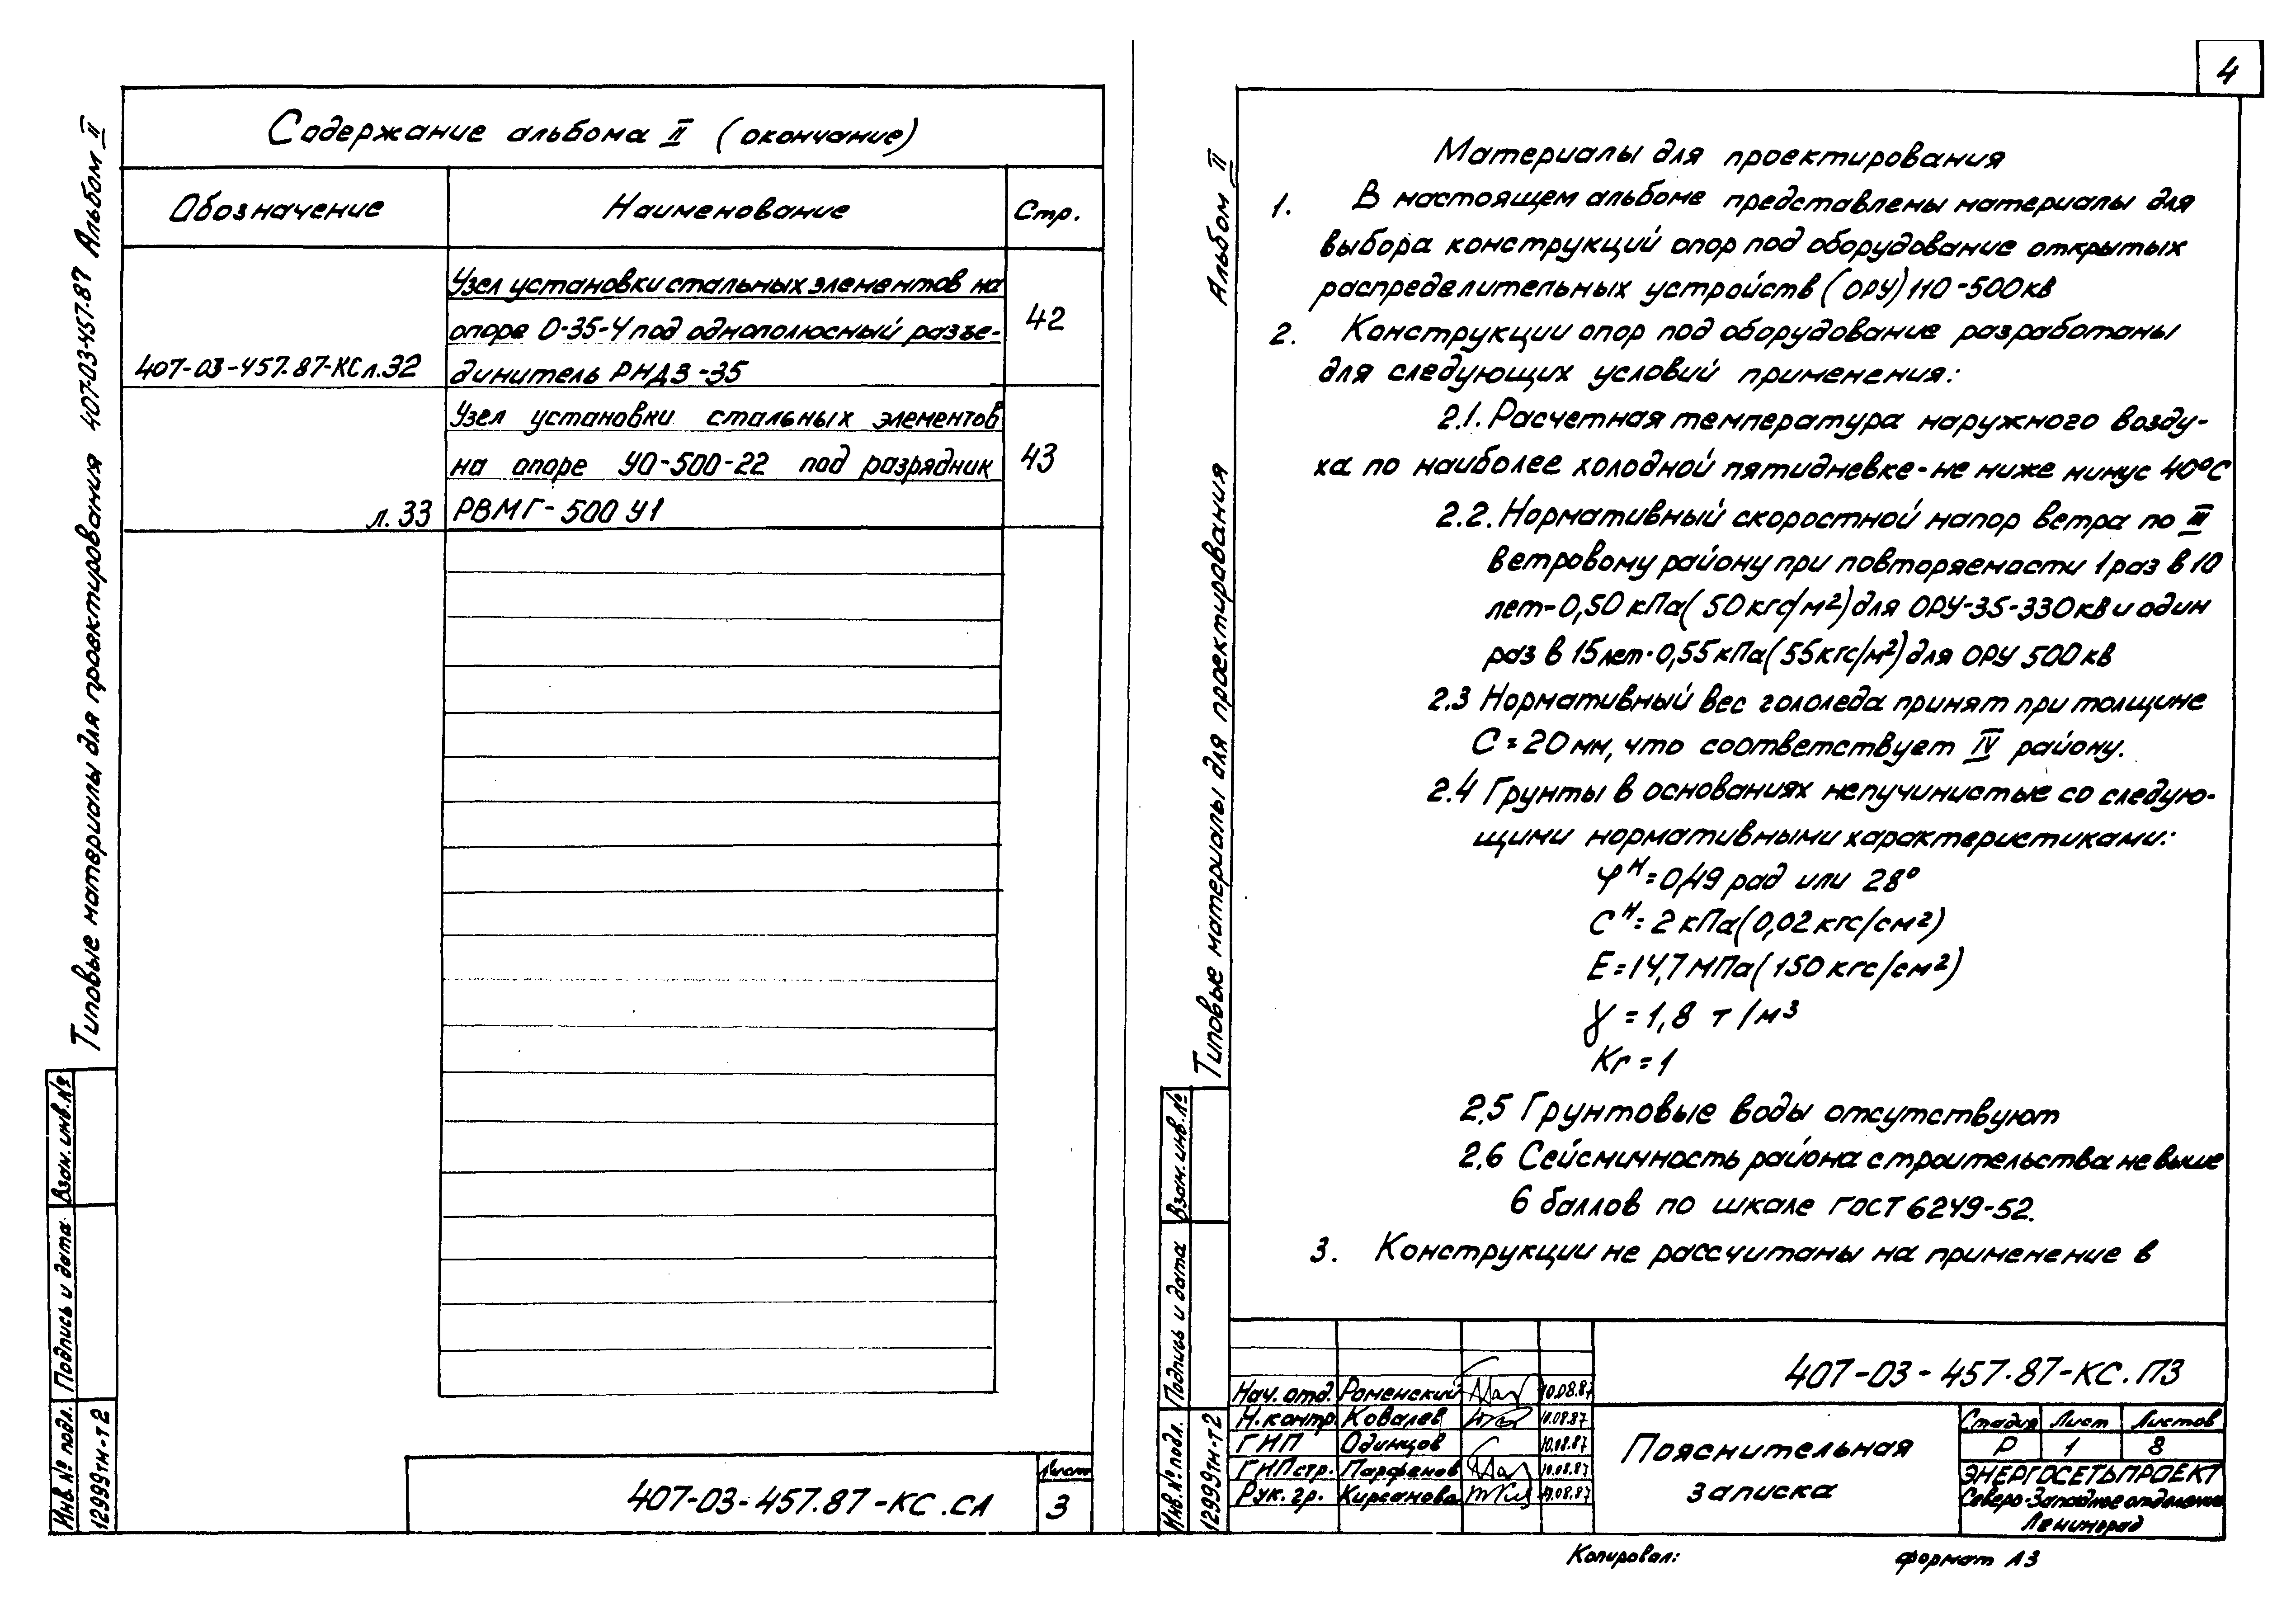 Содержание альбома II (окончание)
Обозначение
Наименование
Стр.
407-03-457.87-КС л.32
Узел установки стальных элементов на
опоре О-35-4 под однополюсный разъе-
динитель РНДЗ-35
42
л. 33
Узел установки стальных элементов
на опоре УО-500-22 под разрядник
РВМГ-500 У1
43
Типовые материалы для проектирования 407-03-457.87 Альбом II
Взам. инв. №
Подпись и дата
Инв. № подл.
12999тм-т2
407-03-457.87-КС.СА
Лист
3
4
Материалы для проектирования
1. В настоящем альбоме представлены материалы для
выбора конструкций опор под оборудование открытых
распределительных устройств (ОРУ) 110-500кв
2. Конструкции опор под оборудование разработаны
для следующих условий применения:
2.1. Расчетная температура наружного возду-
ха по наиболее холодной пятидневке-не ниже минус 40°С
2.2. Нормативный скоростной напор ветра по III
ветровому району при повторяемости 1 раз в 10
лет-0,50 кПа (50 кгс/м²) для ОРУ-35-330кв и один
раз в 15 лет-0,55 кПа (55кгс/м²) для ОРУ 500 кв
2.3 Нормативный вес гололеда принят при толщине
С=20 мм, что соответствует IV району.
2.4 Грунты в основаниях непучинистые со следую-
щими нормативными характеристиками:
φᴴ=0,49 рад или 28°
Сᴴ=2 кПа (0,02 кгс/см²)
Е=14,7 МПа (150 кгс/см²)
γ = 1,8 т/м³
Кг = 1
2.5 Грунтовые воды отсутствуют
2.6 Сейсмичность района строительства не выше
6 баллов по шкале ГОСТ 6249-52.
3. Конструкции не рассчитаны на применение в
Типовые материалы для проектирования Альбом II
Взам. инв. №
Подпись и дата
Инв. № подл.
12999тм-т2
Нач. отд. Роменский 10.08.87
Н. контр. Ковалев 10.08.87
ГИП Одинцов 10.08.87
ГИП стр. Парфенов 10.08.87
Рук. гр. Кирсанова 10.08.87
407-03-457.87-КС.ПЗ
Пояснительная
записка
Стадия Лист Листов
Р 1 8
ЭНЕРГОСЕТЬПРОЕКТ
Северо-Западное отделение
Ленинград
Копировал:
формат А3